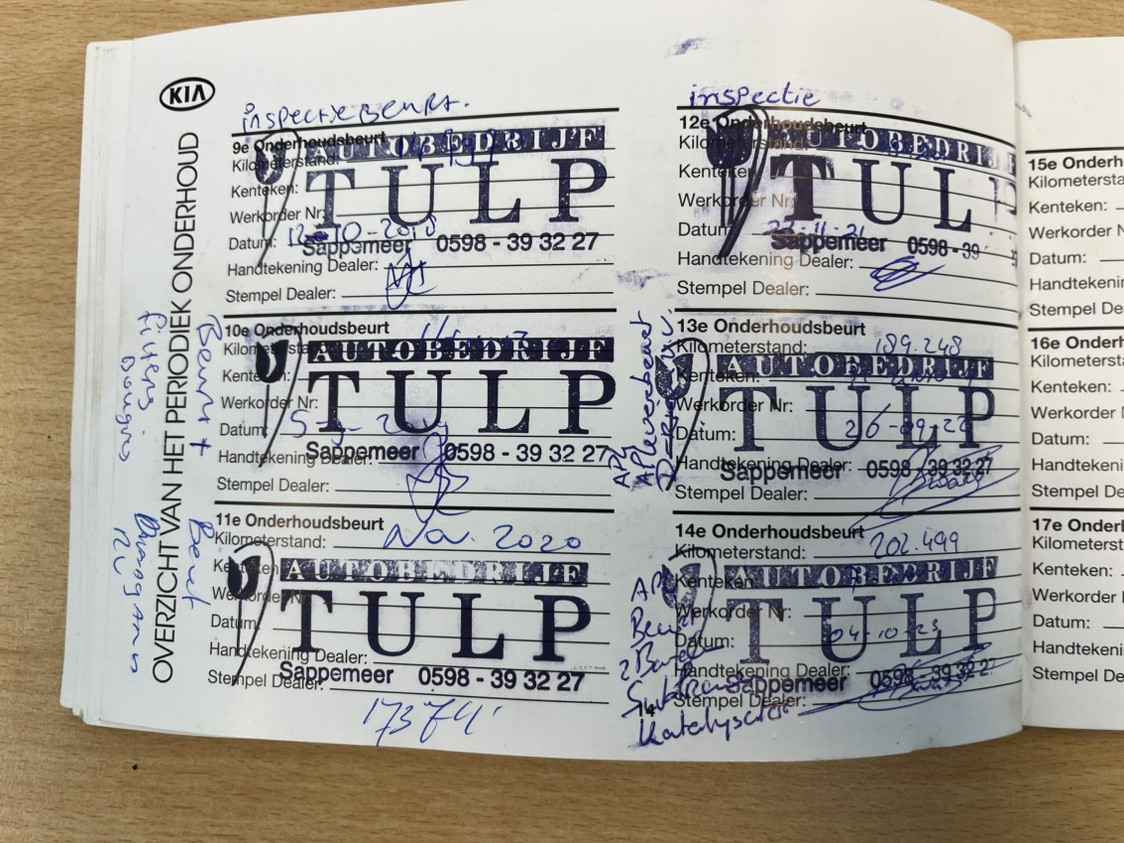 KIA
OVERZICHT VAN HET PERIODIEK ONDERHOUD
inspectie Beurt.
9e Onderhoudsbeurt
Kilometerstand:
Kenteken:
Werkorder Nr:
Datum: 12-10-2018
Handtekening Dealer:
Stempel Dealer:
AUTOBEDRIJF
TULP
Sappemeer 0598 - 39 32 27
10e Onderhoudsbeurt
Kilometerstand:
Kenteken:
Werkorder Nr:
Datum:
Handtekening Dealer:
Stempel Dealer:
AUTOBEDRIJF
TULP
Sappemeer 0598 - 39 32 27
Beurt +
filters
bougies
11e Onderhoudsbeurt
Kilometerstand: Nov. 2020
Kenteken:
Werkorder Nr:
Datum:
Handtekening Dealer:
Stempel Dealer:
AUTOBEDRIJF
TULP
Sappemeer 0598 - 39 32 27
Beurt
inspectie
12e Onderhoudsbeurt
Kilometerstand:
Kenteken:
Werkorder Nr:
Datum: 22-11-21
Handtekening Dealer:
Stempel Dealer:
AUTOBEDRIJF
TUL
Sappemeer 0598 - 39
13e Onderhoudsbeurt
Kilometerstand: 189.248
Kenteken:
Werkorder Nr:
Datum: 26-09-22
Handtekening Dealer:
Stempel Dealer:
AUTOBEDRIJF
TULP
Sappemeer 0598 - 39 32 27
APK
14e Onderhoudsbeurt
Kilometerstand: 202.499
Kenteken:
Werkorder Nr:
Datum: 04-10-23
Handtekening Dealer:
Stempel Dealer:
AUTOBEDRIJF
TULP
Sappemeer 0598 - 39 32 27
APK
Beurt
14
15e Onderh
Kilometersta
Kenteken:
Werkorder N
Datum:
Handtekenin
Stempel De
16e Onderh
Kilometersta
Kenteken:
Werkorder N
Datum:
Handtekenin
Stempel De
17e Onderh
Kilometerst
Kenteken:
Werkorder
Datum:
Handtekeni
Stempel De